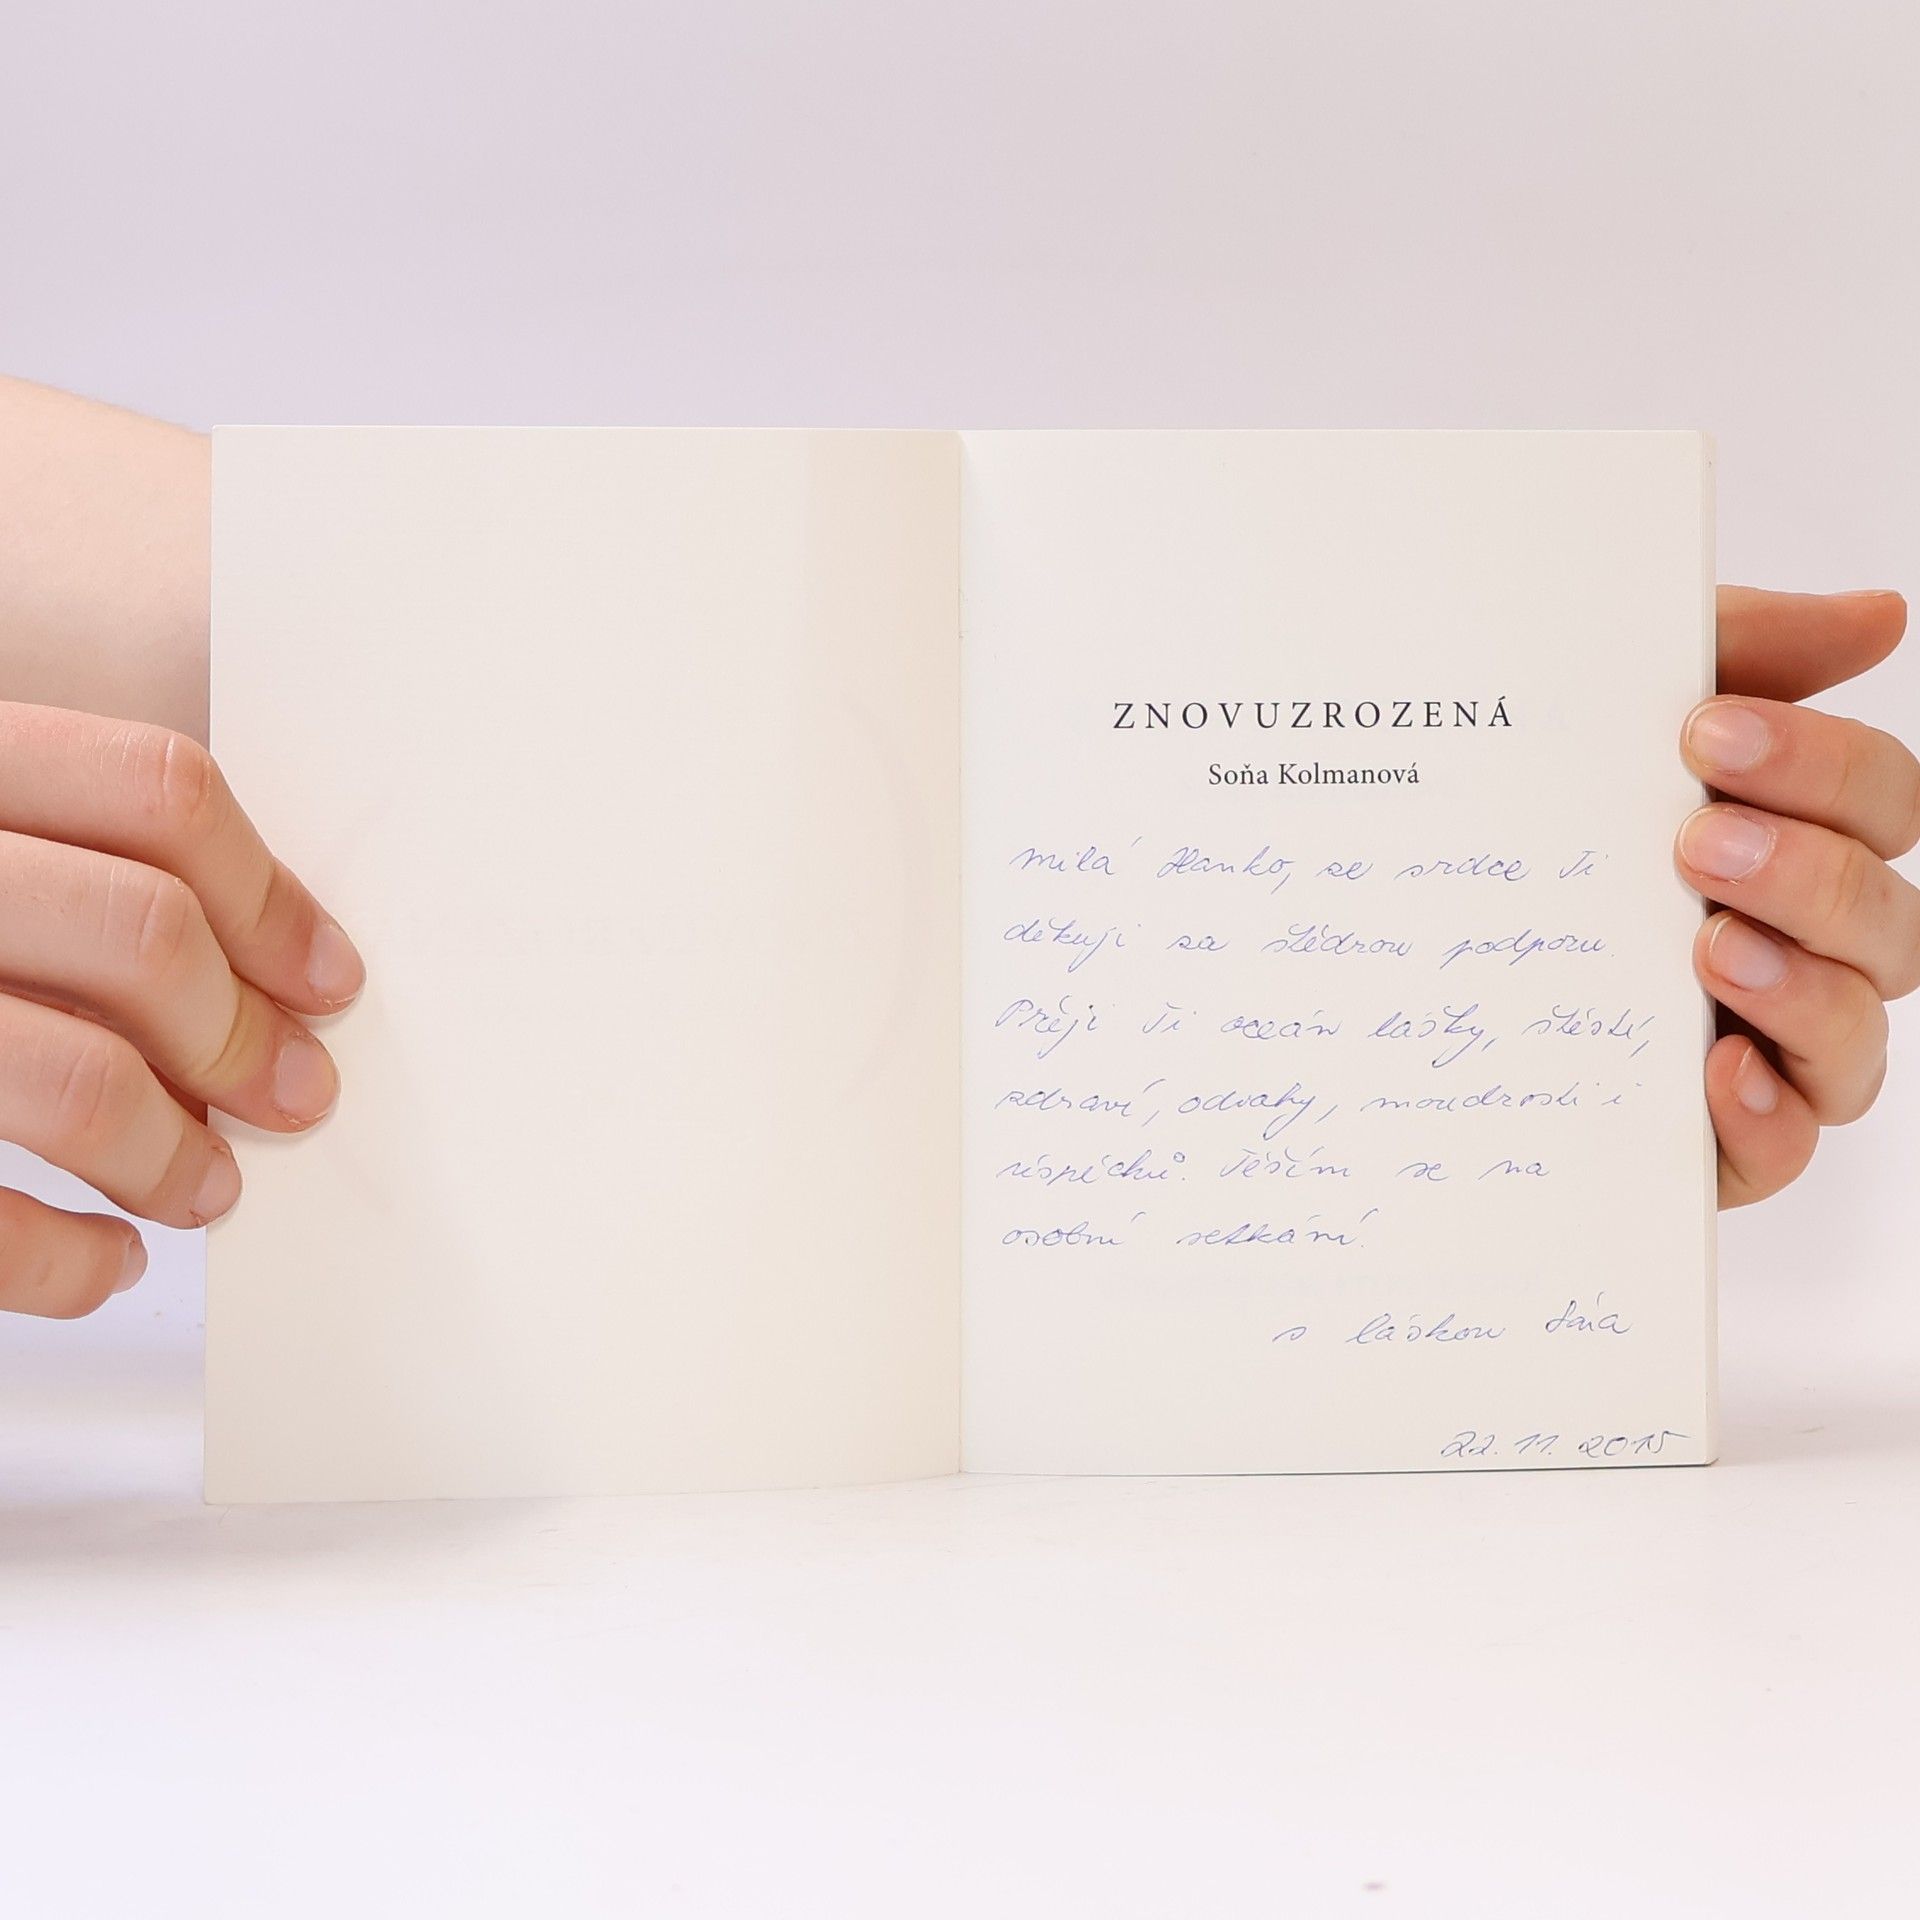 ZNOVUZROZENÁ
Soňa Kolmanová
Milá Hanko, ze srdce Ti
děkuji za štědrou podporu.
Přeji Ti oceán lásky, štěstí,
zdraví, odvahy, moudrosti i
úspěchů. Těším se na
osobní setkání.
s láskou
22. 11. 2015